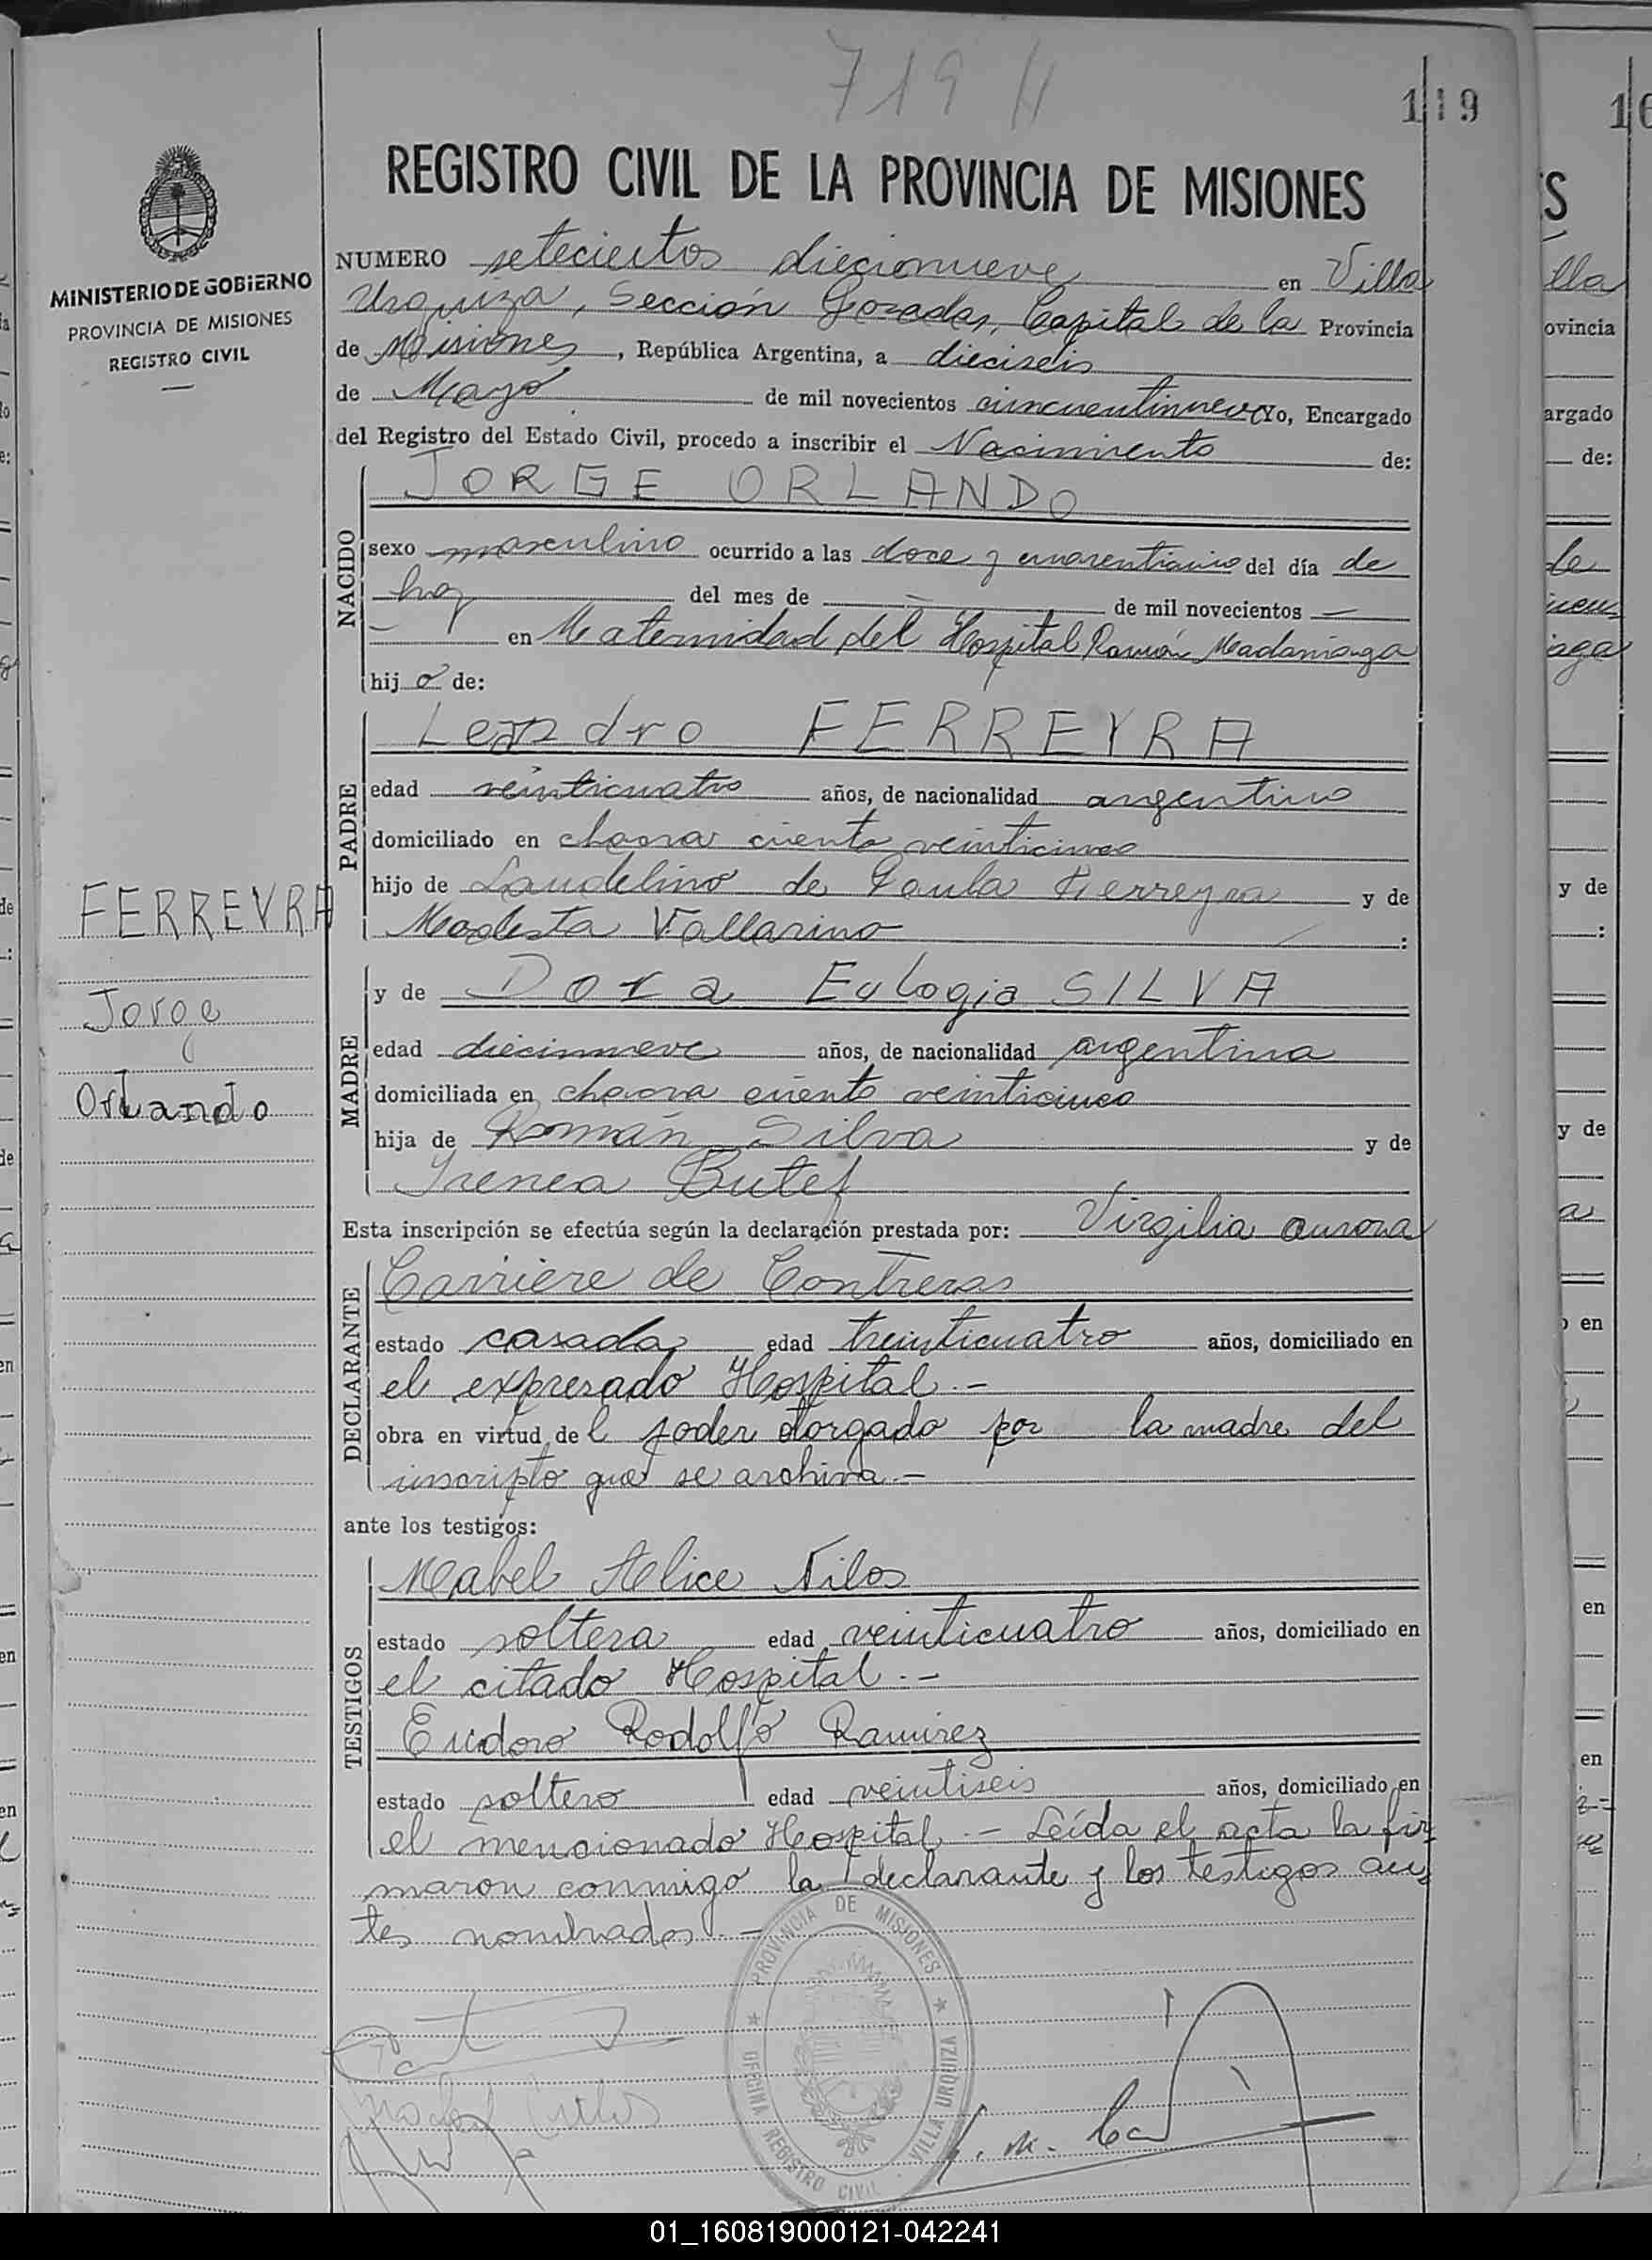 719 H
119
REGISTRO CIVIL DE LA PROVINCIA DE MISIONES
MINISTERIO DE GOBIERNO
PROVINCIA DE MISIONES
REGISTRO CIVIL
NUMERO setecientos diecinueve en Villa
Urquiza, Sección Posadas, Capital de la Provincia
de Misiones, República Argentina, a dieciseis
de Mayo de mil novecientos cincuentinueve Yo, Encargado
del Registro del Estado Civil, procedo a inscribir el Nacimiento de:
NACIDO
JORGE ORLANDO
sexo masculino ocurrido a las doce y cuarenticinco del día de
hoy del mes de — de mil novecientos —
— en Maternidad del Hospital Ramón Madariaga
hijo de:
PADRE
Leandro FERREYRA
edad veinticuatro años, de nacionalidad argentino
domiciliado en chacra ciento veinticinco
hijo de Laudelino de Paula Ferreyra y de
Modesta Vallarino :
FERREYRA
Jorge
Orlando
MADRE
y de Dora Eulogia SILVA
edad diecinueve años, de nacionalidad argentina
domiciliada en chacra ciento veinticinco
hija de Román Silva y de
Irenea
Esta inscripción se efectúa según la declaración prestada por: Virgilia Aurora
DECLARANTE
Carriere de Contreras
estado casada edad treinticuatro años, domiciliado en
el expresado Hospital.-
obra en virtud del poder otorgado por la madre del
inscripto que se archiva.-
ante los testigos:
TESTIGOS
Mabel Alice
estado soltera edad veinticuatro años, domiciliado en
el citado Hospital.-
Eudoro Rodolfo Ramirez
estado soltero edad veintiseis años, domiciliado en
el mencionado Hospital.- Leída el acta la fir=
maron conmigo la declarante y los testigos an=
tes nombrados.-
PROVINCIA DE MISIONES
OFICINA REGISTRO CIVIL · VILLA URQUIZA
01_160819000121-042241